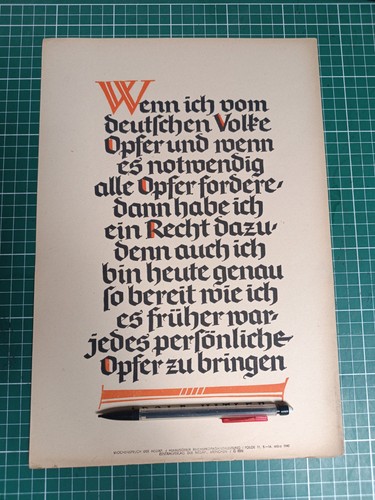 Wenn ich vom
deutschen Volke
Opfer und wenn
es notwendig
alle Opfer fordere-
dann habe ich
ein Recht dazu-
denn auch ich
bin heute genau
so bereit wie ich
es früher war-
jedes persönliche
Opfer zu bringen